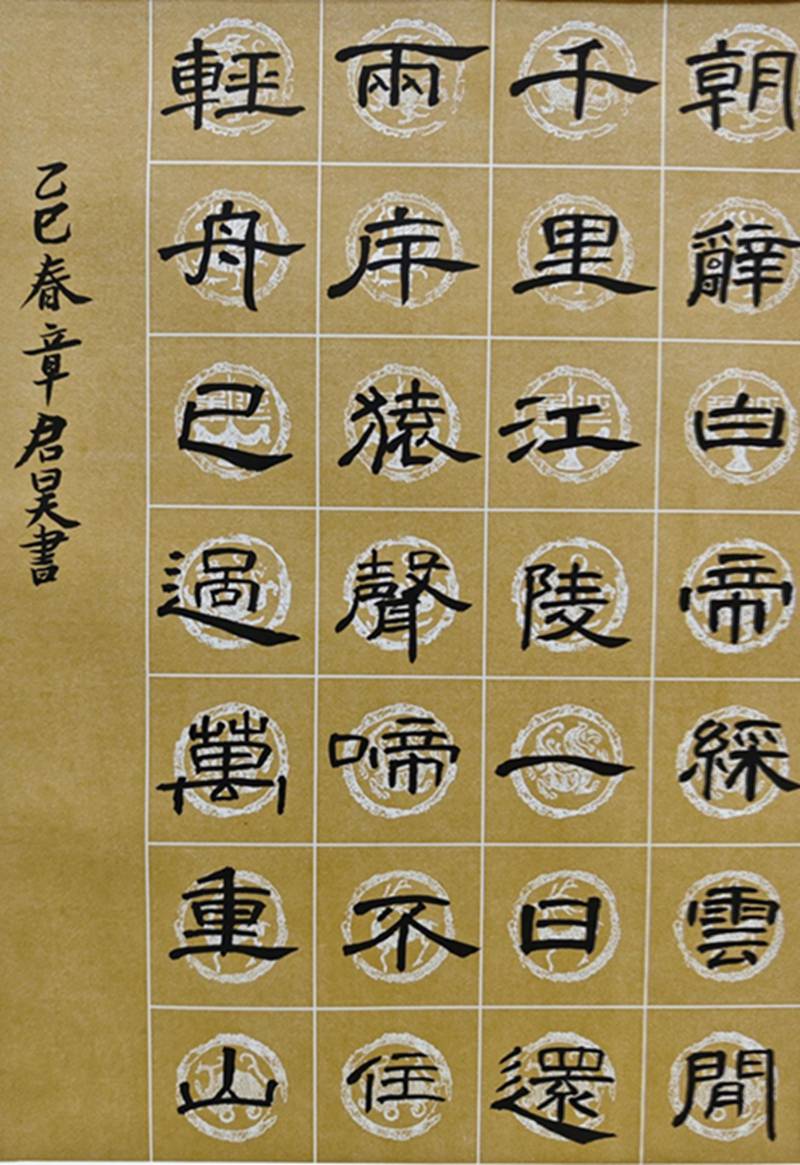 朝辭白帝綵雲間
千里江陵一日還
兩岸猿聲啼不住
輕舟已過萬重山
乙巳春章君昊書